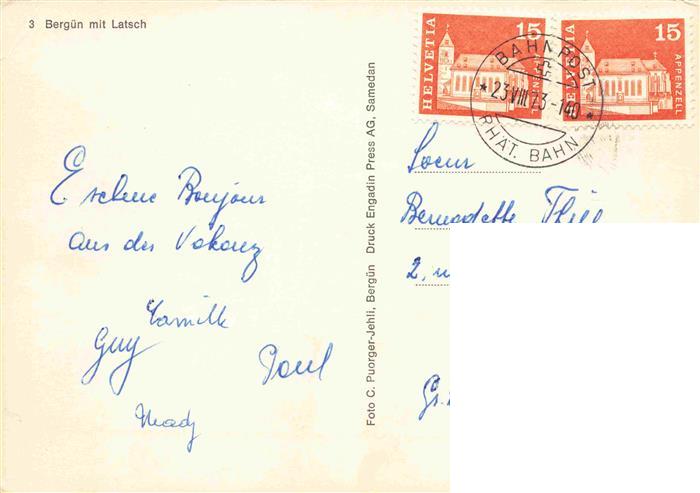 3 Bergün mit Latsch
HELVETIA 15 APPENZELL
HELVETIA 15 APPENZELL
BAHNPOST
23.VIII.73-140
RHÄT. BAHN
E schene Bonjour
aus der Vakanz
Camille
Guy
Paul
Mady
Foto C. Puorger-Jehli, Bergün Druck Engadin Press AG, Samedan
Soeur
Bernadette Thill
2,
Gr.